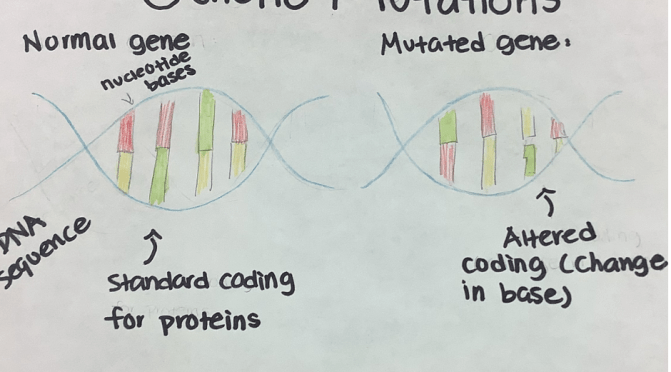 Mutations
Normal gene
Mutated gene:
nucleotide
bases
DNA
sequence
Standard coding
for proteins
Altered
coding (Change
in base)